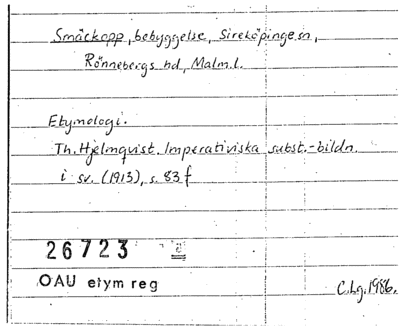 Smäckopp, bebyggelse, Sireköpinge sn,
Rönnebergs hd, Malm. l.
Etymologi.
Th. Hjelmqvist. Imperativiska subst.-bildn.
i sv. (1913), s. 83 f
26723
OAU etym reg
C. Lg. 1986.